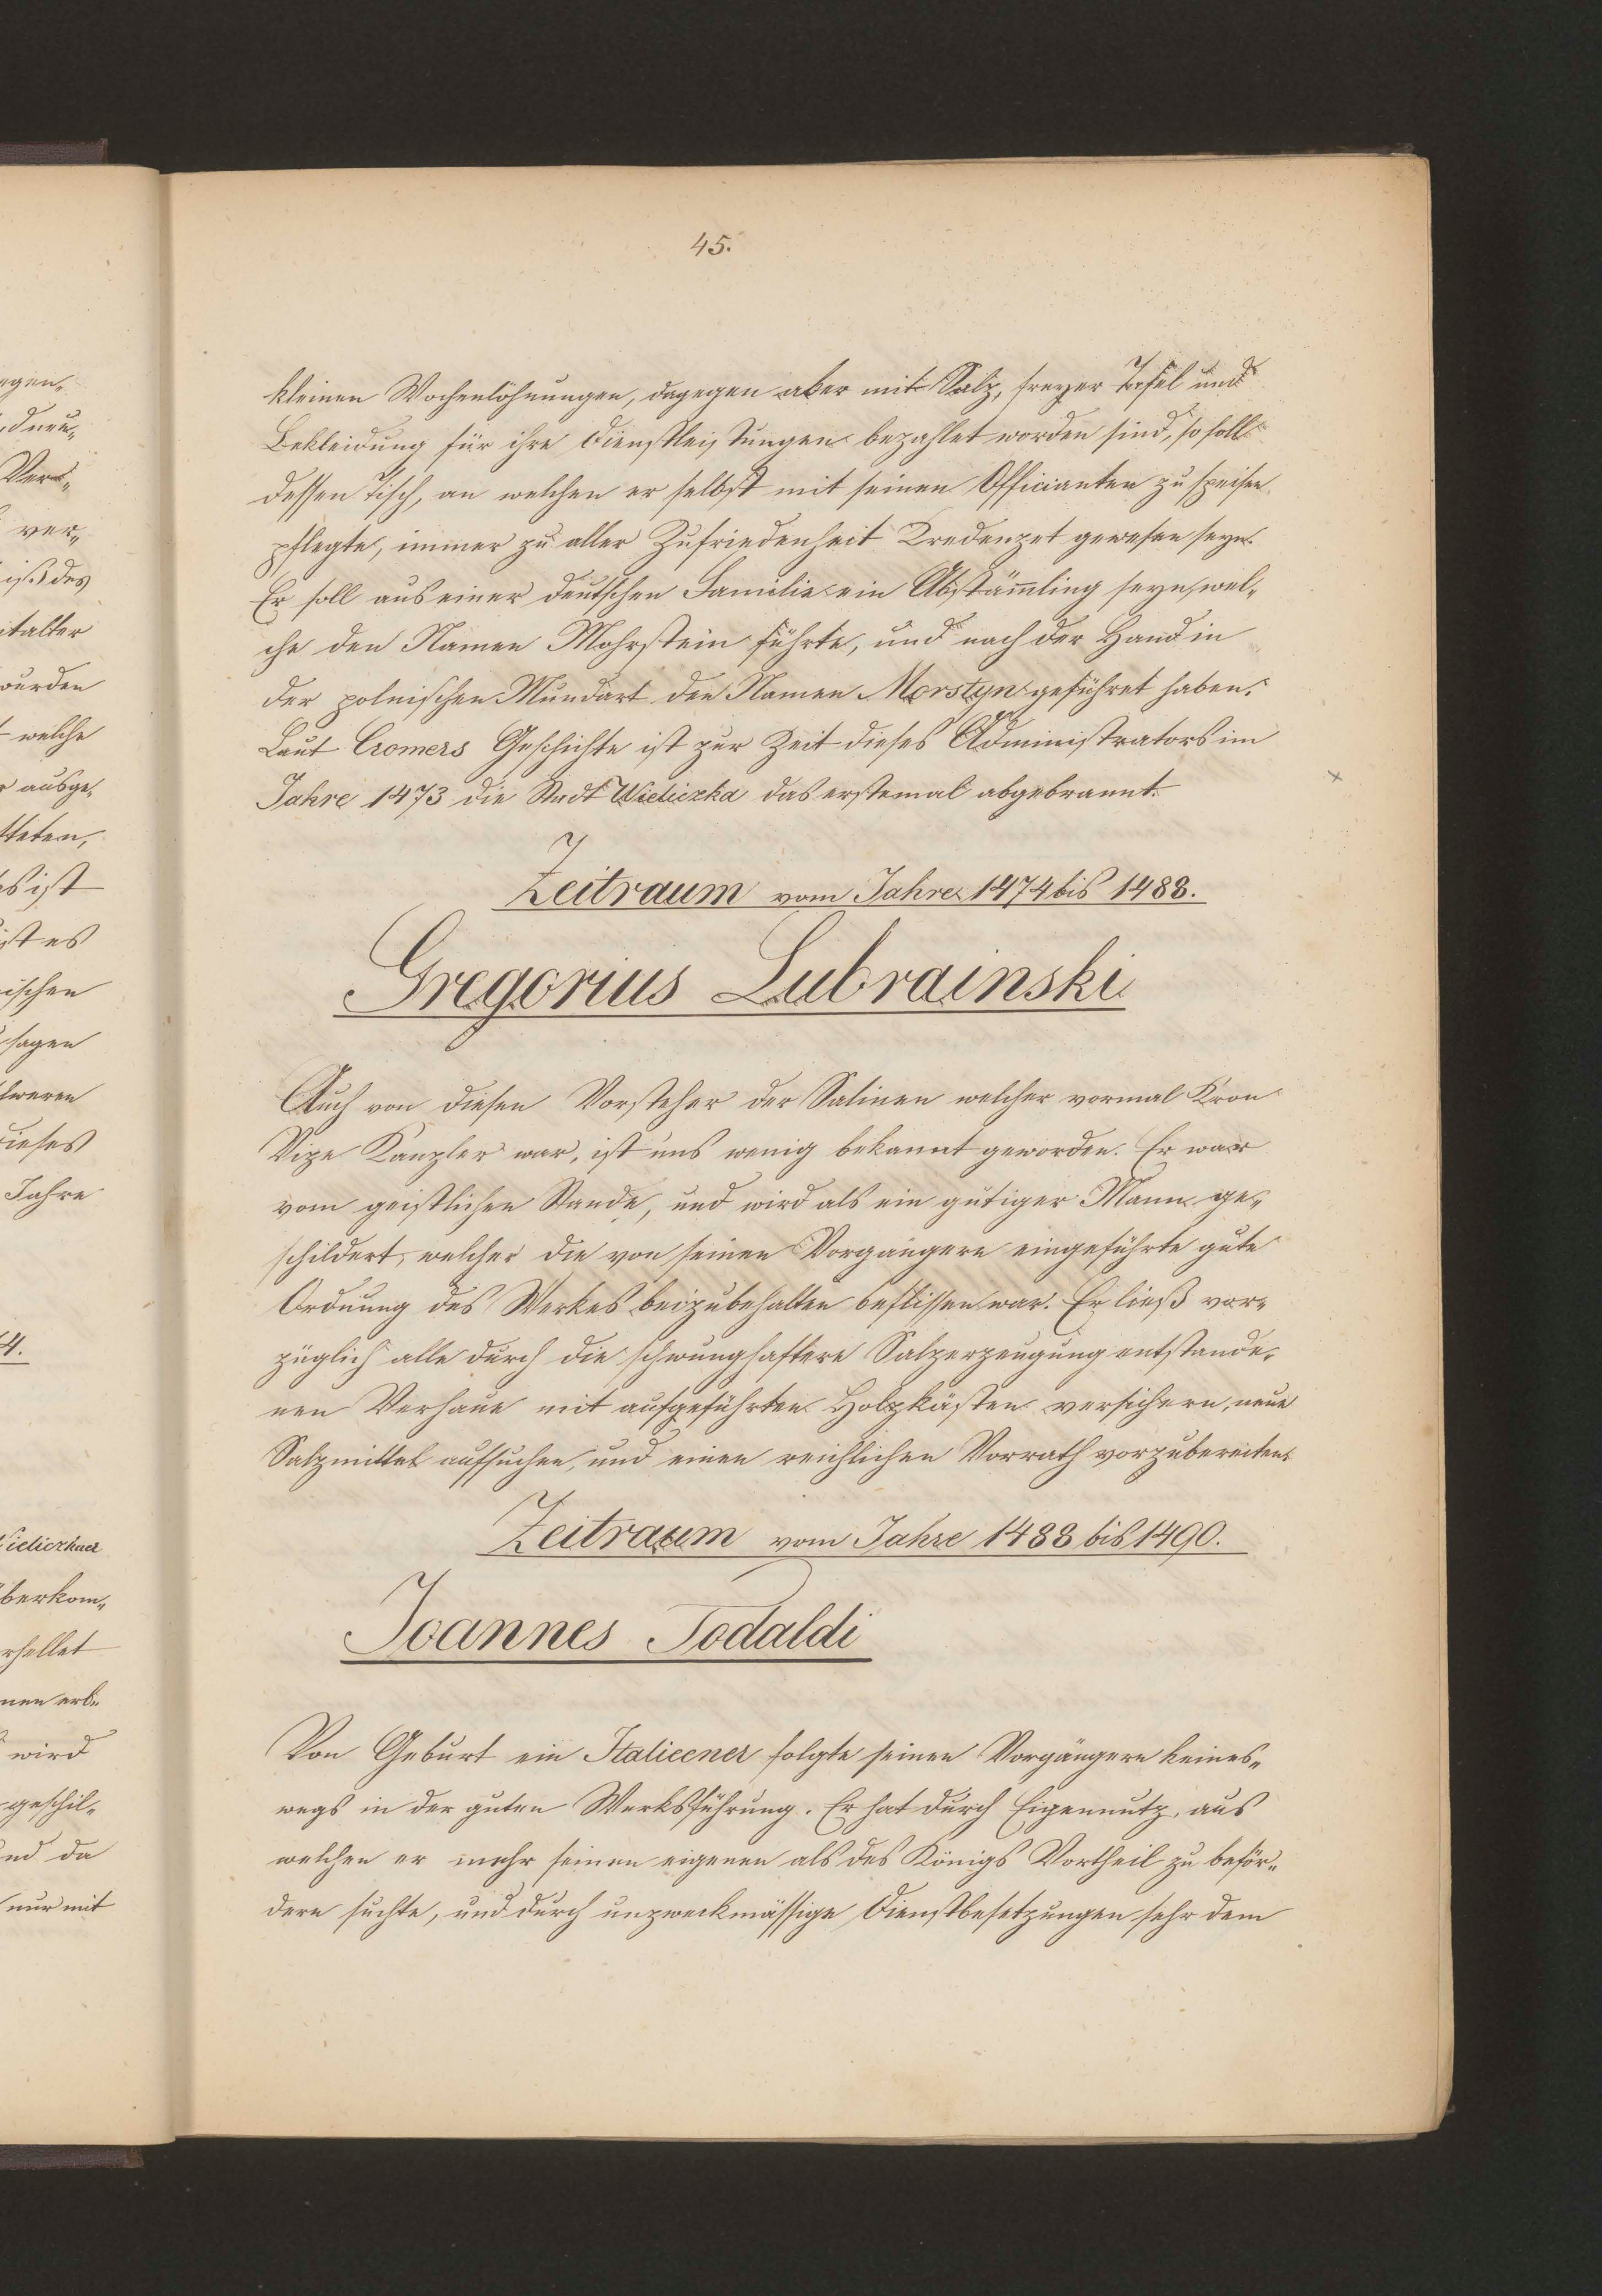 45.
kleinen Wochenlöhnungen, dagegen aber mit Salz, freyer Tafel und
Bekleidung für ihre Dienstleistungen bezahlet worden sind, so soll
dessen Tisch, an welchen er selbst mit seinen Officianten zu speisen
pflegte, immer zu aller Zufriedenheit Credenzet gewesen seyn.
Er soll aus einer deutschen Familie ein Abstam̅ling seyn, wel„
che den Namen Mohrstein führte, und nach der Hand in
der polnischen Mundart den Namen Morstyn geführet haben.
Laut Cromers Geschichte ist zur Zeit dieses Administrators im
Jahre 1473 die Stadt Wieliczka das erstemal abgebrannt.
Zeitraum vom Jahre 1474 bis 1488.
Gregorius Lubrainski
Auch von diesen Vorsteher der Salinen welcher vormal Kron
Vize Kanzler war, ist uns wenig bekannt geworden. Er war
vom geistlichen Stande, und wird als ein gütiger Mann ge„
schildert, welcher die von seinen Vorgängern eingeführte gute
Ordnung des Werkes beizubehalten beflissen war. Er ließ vor„
züglich alle durch die schwunghaftere Salzerzeugung entstande„
nen Verhaue mit aufgeführten Holzkästen versichern, neue
Salzmittel aufsuchen, und einen reichlichen Vorrath vorzubereiten.
Zeitraum vom Jahre 1488 bis 1490.
Joannes Todaldi
Von Geburt ein Italiener folgte seinen Vorgängern keines„
wegs in der guten Werksführung. Er hat durch Eigennutz, aus
welchen er mehr seinen eigenen als des Königs Vortheil zu beför„
dern suchte, und durch unzweckmässige Dienstbesetzungen sehr dem